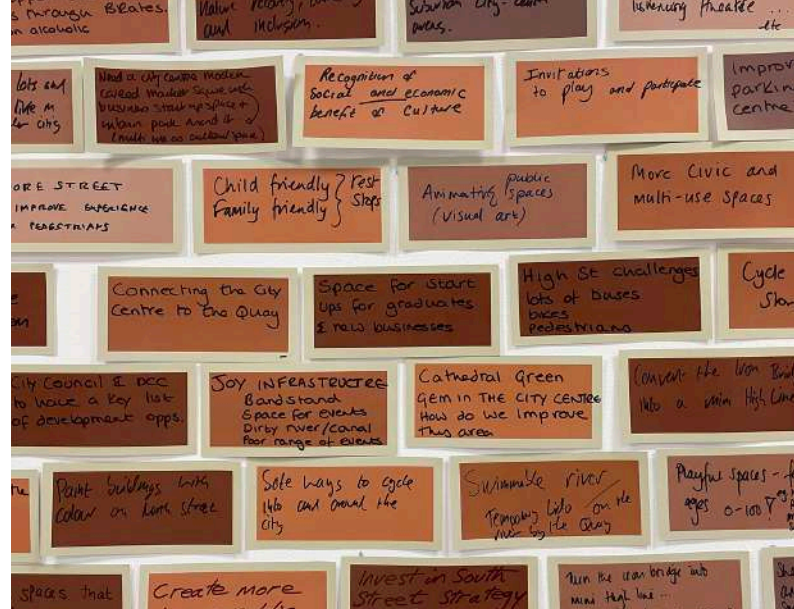 through BRates.
on alcoholic
and inclusion.
Suburban City-centre
areas.
listening theatre ...
etc
lots and
city
Need a city centre modern
covered market square with
business start up space +
urban park around it
Recognition of
Social and economic
benefit of Culture
Invitations
to play and participate
Improv
parkin
centre
ORE STREET
IMPROVE EXPERIENCE
PEDESTRIANS
Child friendly } rest
Family friendly } stops
Animating public
spaces
(visual art)
More Civic and
multi-use spaces
Connecting the City
Centre to the Quay
Space for start
ups for graduates
& new businesses
High St challenges
lots of buses
bikes
pedestrians
Cycle
City Council & DCC
to have a key list
of development opps.
JOY INFRASTRUCTRE
Bandstand
Space for events
Dirty river/canal
Poor range of events
Cathedral Green
GEM IN THE CITY CENTRE
How do we improve
this area
Convert the Iron Brid
into a mini High Line
Paint buildings with
colour on North street
Safe ways to cycle
into and around the
city
Swimmable river
Temporary Lido on the
river by the Quay
Playful spaces - f
ages 0-100
spaces that
Create more
Invest in South
Street Strategy
Turn the iron bridge into
mini high line...